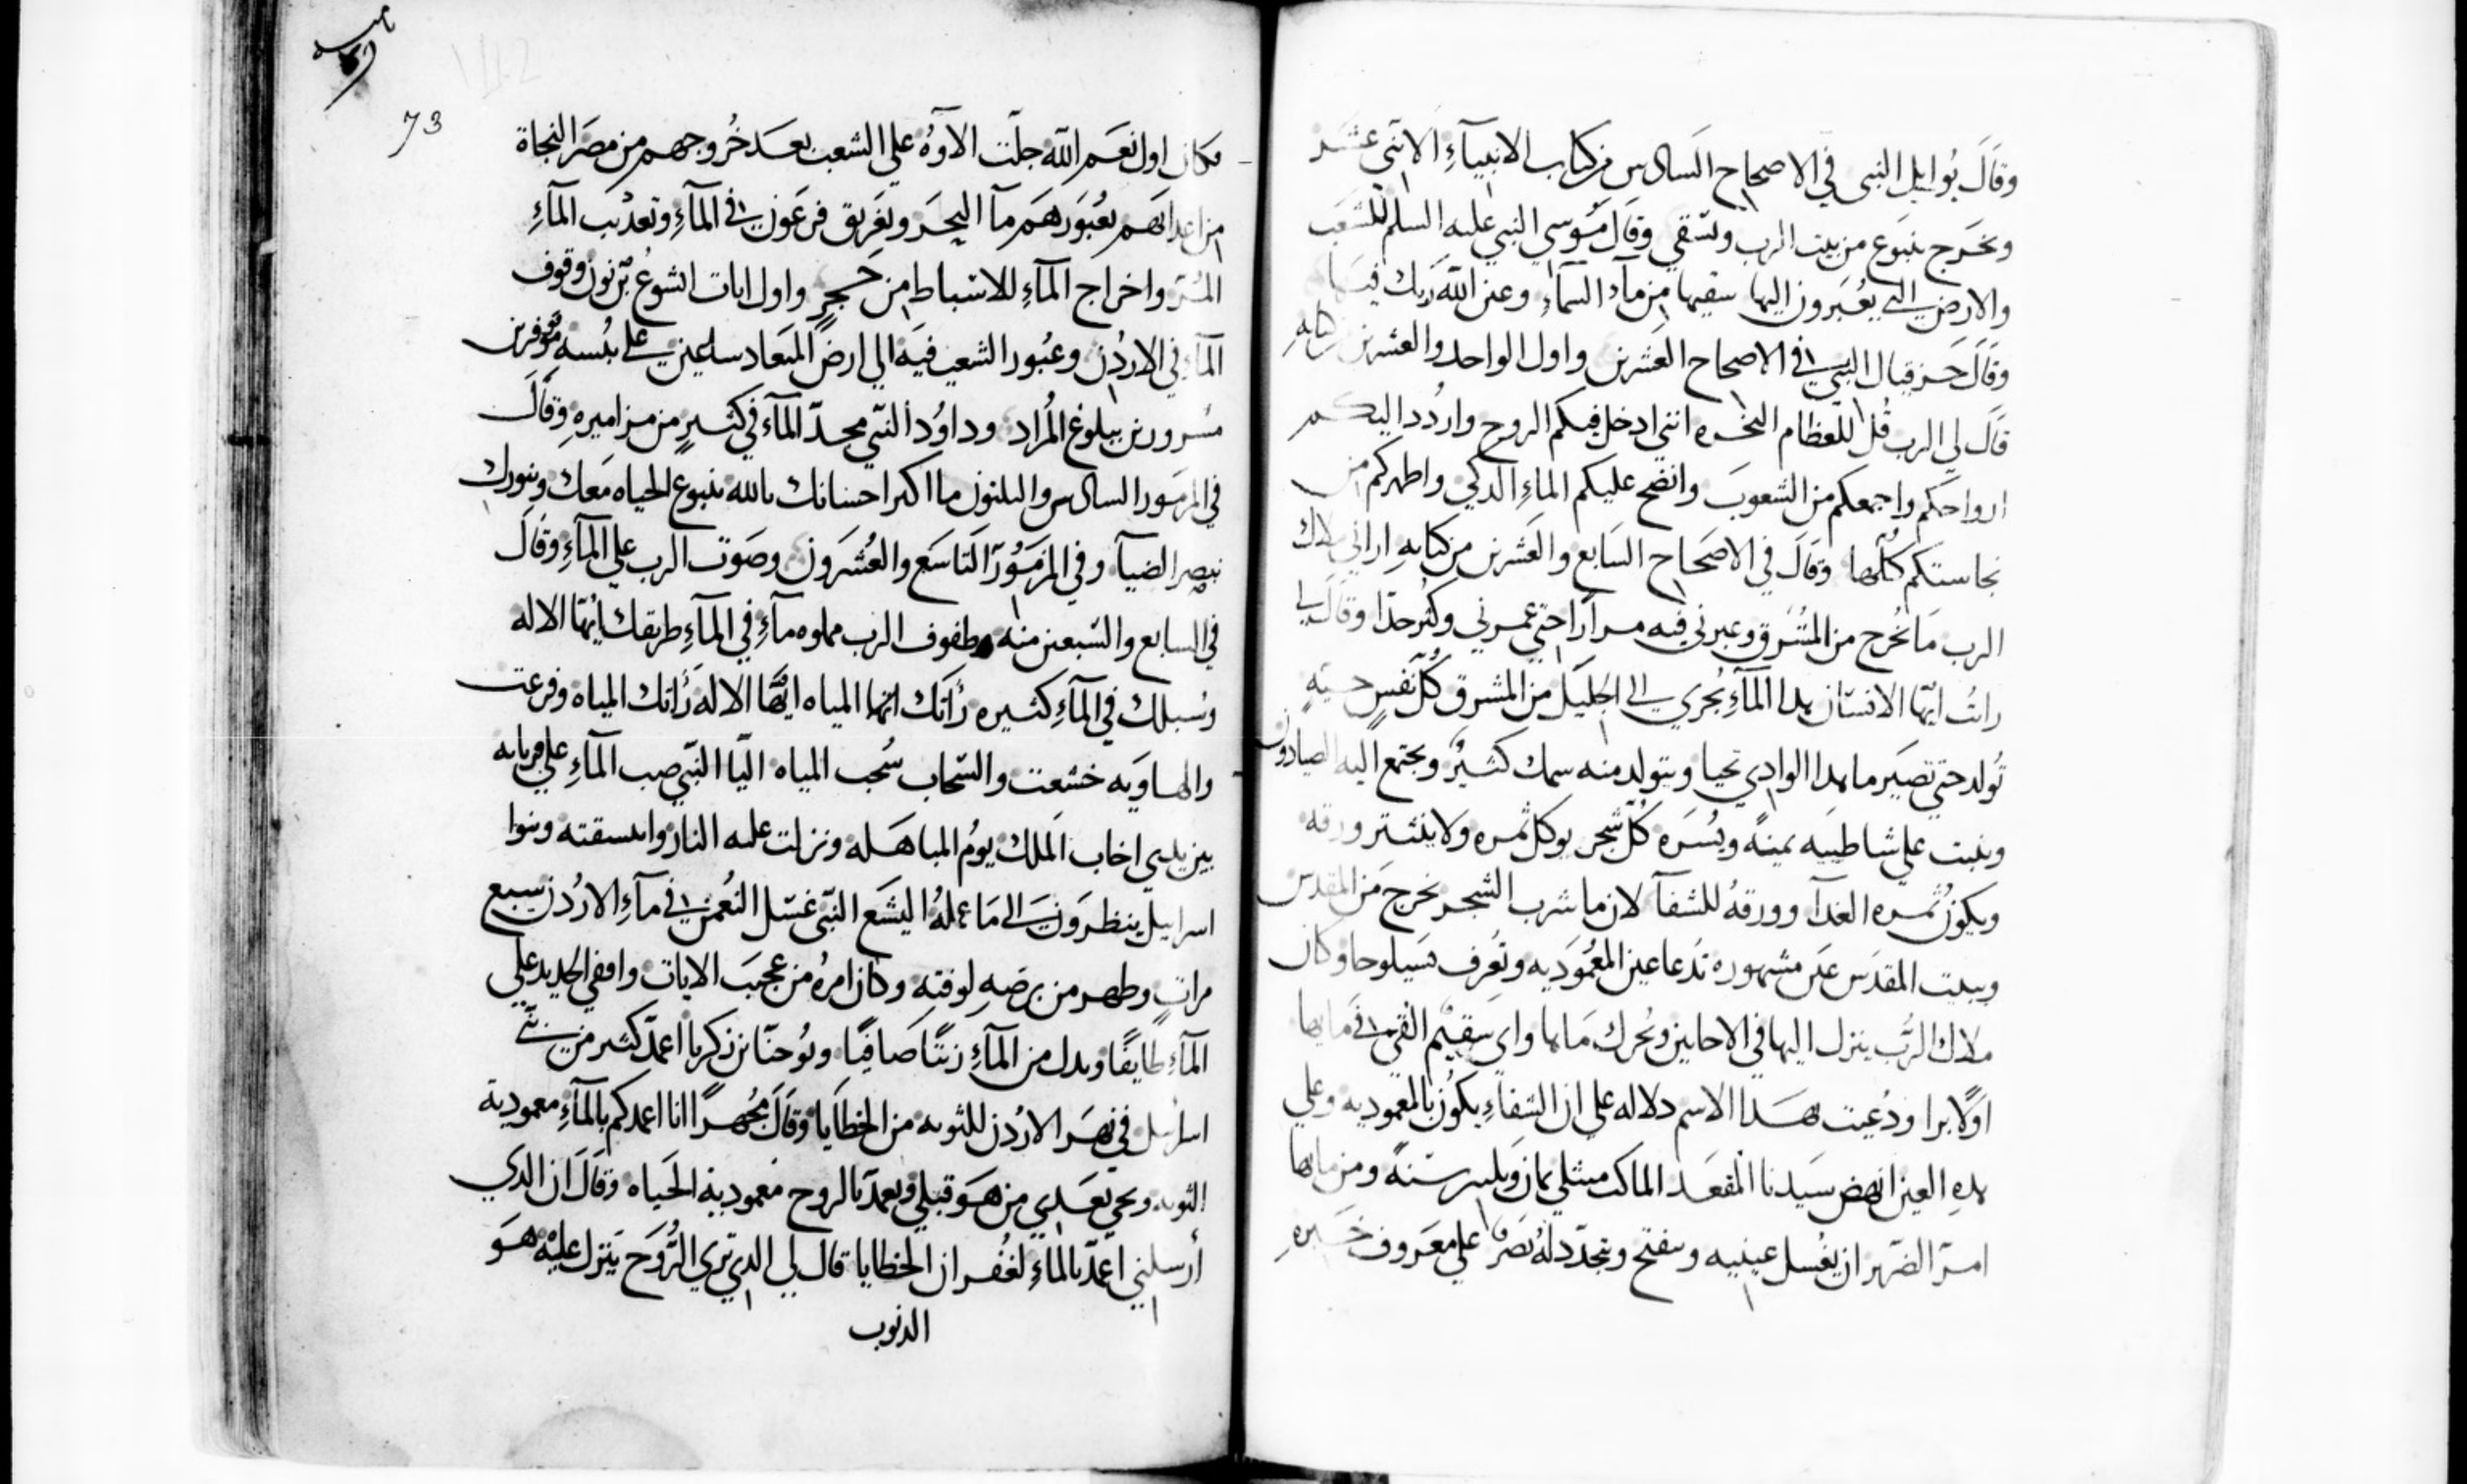 وقال يوايل النبى في الاصحاح السادس من كتاب الانبيآءِ الاثني عشر
وتخرج ينبوع من بيت الرب وتسقي وقال موسي النبي عليه السلم للشعب
والارض التي يعبرون اليها سقيها من مآء السمآءِ وعين الله ربك فيها
وقال حزقيال النبي في الاصحاح العشرين واول الواحد والعشرين من كتابه
قال لي الرب قل للعظام النخره انني ادخل فيكم الروح واردد اليكم
ارواحكم واجمعكم من الشعوب وانضح عليكم الماءِ الدكي واطهركم من
نجاستكم كلها وقال في الاصحاح السابع والعشرين من كتابهِ اراني ملاك
الرب مآ تخرج من المشرق وعبرني فيه مراراً حتي غمرني وكثر جدا وقال لي
رايت ايها الانسان هدا المآءِ يجري الي الجليل من المشرق كل نفسٍ حيةٍ
تولد حتي تصير ما هدا الوادي تحيا ويتولد منه سمك كثير ويجتمع اليه الصيادون
وينبت علي شاطييه يمينه ويسره كل شجر يوكل ثمره ولا ينتثر ورقه
ويكون ثمره الغدآ وورقه للشفآ لان ما شرب الشجر يخرج من المقدس
وببيت المقدس عين مشهوره تدعا عين المعموديه وتعرف بسيلوحا وكان
ملاك الرب ينزل اليها في الاحايين ويحرك ماها واي سقيم القي في مايها
اولاً برا ودعيت بهدا الاسم دلاله علي ان الشفاءِ يكون بالمعموديه وعلي
هدهِ العين انهض سيدنا المقعد الماكث مند ثمان وثلثين سنه ومن مايها
امر الضرير ان يغسل عينيه وينفتح ويتجدد له بصراً علي معروف خبره
73
فكان اول نعم الله جلّت الاوهُ علي الشعب بعد خروجهم من مصر النجاة
من اعدايهم بعبورهم مآ البحر وتغريق فرعون في المآءِ وتعديب المآءِ
المُر واخراج المآءِ للاسباط من حجرٍ واول ايات ايشوع بن نون وقوف
المآءِ في الاردن وعبور الشعب فيه الي ارض الميعاد سالمين علي يبسه موفرين
مسرورين ببلوغ المُراد وداوُد النبي مجدّ المآءَ في كثيرٍ من مزاميرهِ وقال
في المزمور السادس والثلثون ما اكثر احسانك يالله ينبوع الحياه معك وبنورك
نبصر الضيآ وفي المزمور التاسع والعشرون وصوت الرب علي المآءِ وقال
في السابع والسبعين منه وطفوف الرب مملوه مآءِ في المآءِ طريقك ايها الاله
وسبلك في المآءِ كثيره رأتك ايها المياه ايها الاله رأتك المياه وفزعت
والهاويه خشعت والسحاب سُحب المياه اليا النبي صب المآءِ علي قربانه
بين يدي اخاب الملك يوم المباهله ونزلت عليه النار وانشقته وبنوا
اسراييل ينظرون الي ما عمله اليشع النبي غسل النعمن في مآءِ الاردن سبع
مراتٍ وطهر من برصهِ لوقته وكان امره من عجيب الايات واقفي الحديد علي
المآءِ طايفًا وبدل من المآءِ زيتًا صافيًا ويوحنا بن زكريا اعمدّ كثير من بني
اسراييل في نهر الاردن للتوبه من الخطايا وقال مجهراً انا اعمدكم بالمآءِ معمودية
التوبه ويجي بعدي من هو قبلي ويعمد بالروح معمودية الحياه وقال ان الدي
أرسلني اعمدّ بالمآءِ لغفران الخطايا قال لي الدي تري الروح ينزل عليه هو
الدنوب